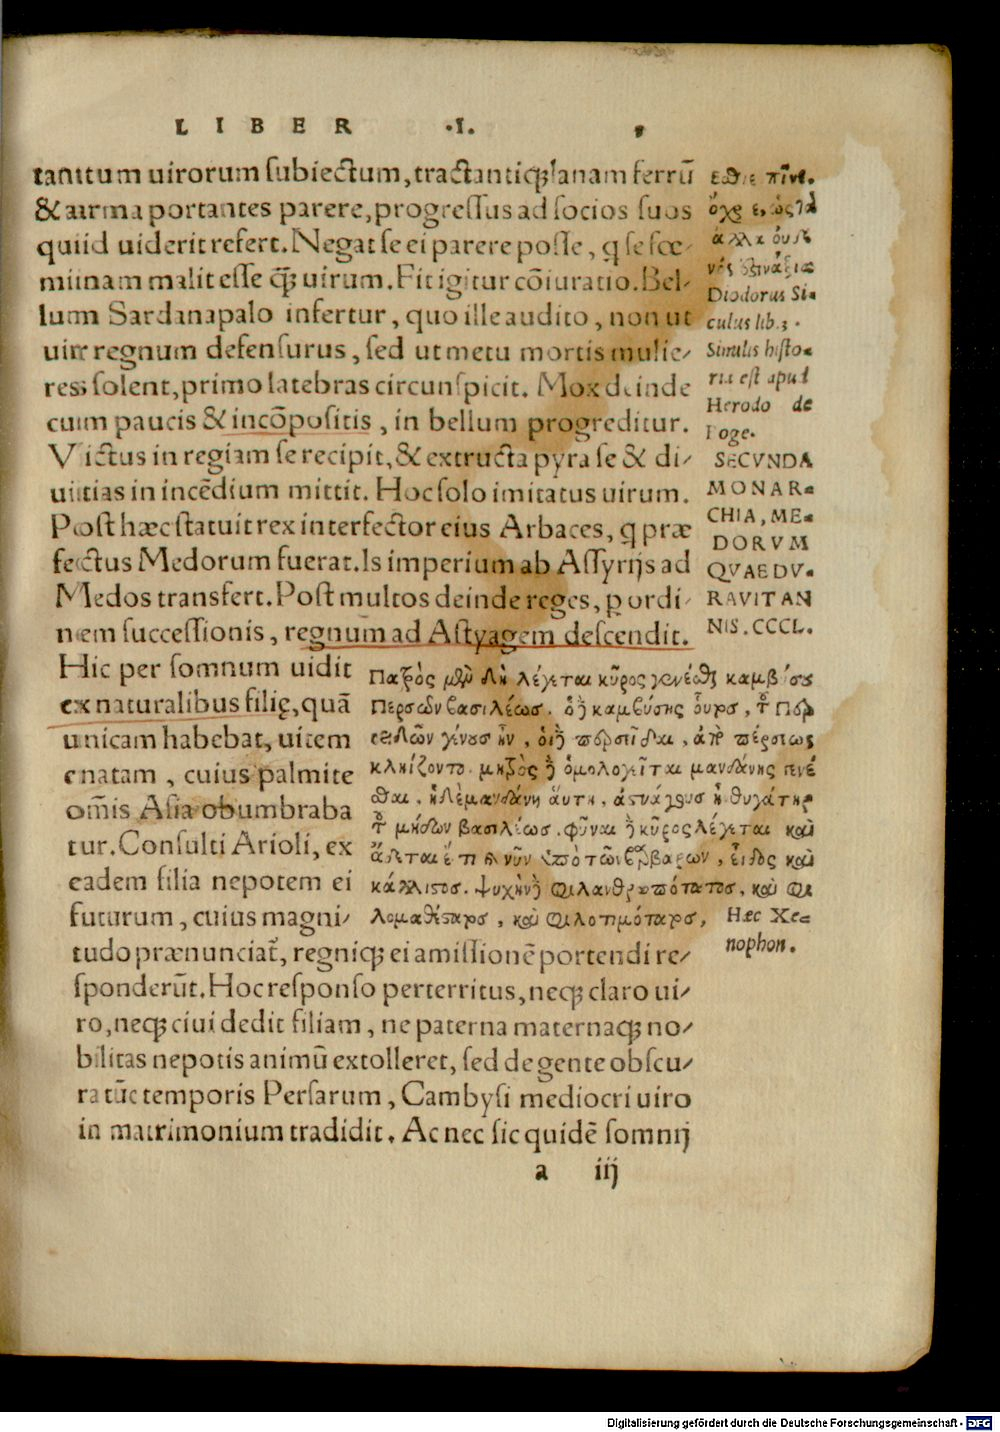 LIBER .I. 5
tantum uirorum subiectum, tractantiq; lanam ferrū
& arma portantes parere, progressus ad socios suos
quid uiderit refert. Negat se ei parere posse, q se fœ-
minam malit esse q̄; uirum. Fit igitur cōiuratio. Bel-
lum Sardanapalo infertur, quo ille audito, non ut
uir regnum defensurus, sed ut metu mortis mulie-
res solent, primo latebras circunspicit. Mox deinde
cum paucis & incōpositis, in bellum progreditur.
Victus in regiam se recipit, & extructa pyra se & di-
uitias in incēdium mittit. Hoc solo imitatus uirum.
Post hæc statuit rex interfector eius Arbaces, q præ
fectus Medorum fuerat. Is imperium ab Assyrijs ad
Medos transfert. Post multos deinde reges, p ordi-
nem successionis, regnum ad Astyagem descendit.
Hic per somnum uidit
ex naturalibus filię, quā
unicam habebat, uitem
enatam, cuius palmite
om̄is Asia obumbraba
tur. Consulti Arioli, ex
eadem filia nepotem ei
futurum, cuius magni-
tudo prænunciat̄, regniq; ei amissionē portendi re-
sponderūt. Hoc responso perterritus, neq; claro ui-
ro, neq; ciui dedit filiam, ne paterna maternaq; no-
bilitas nepotis animū extolleret, sed de gente obscu-
ra tūc temporis Persarum, Cambysi mediocri uiro
in matrimonium tradidit. Ac nec sic quidē somnij
a iij
Diodorus Si-
culus lib.3.
Similis histo-
ria est apud
Herodo de
Foge.
SECVNDA
MONAR-
CHIA, ME-
DORVM
QVAE DV-
RAVIT AN
NIS. CCCL.
Πατρὸς μὲν δὴ λέγεται κῦρος γενέσθαι καμβύσου
Περσῶν βασιλέως. ὁ δὲ καμβύσης οὗτος, τῶν Περ
σειδῶν γένους ἦν, οἱ δὲ περσεῖδαι, ἀπὸ πέρσεως
κλῄζονται. μητρὸς δὲ ὁμολογεῖται μανδάνης γενέ
σθαι, ἡ δὲ μανδάνη αὕτη, ἀστυάγους ἦ θυγάτηρ
τῶν μήδων βασιλέως. φῦναι δὲ κῦρος λέγεται καὶ
ᾄδεται ἔτι καὶ νῦν ὑπὸ τῶν βαρβάρων, εἶδος καὶ
κάλλιστος. ψυχὴν δὲ φιλανθρωπότατος, καὶ φι
λομαθέστατος, καὶ φιλοτιμότατος, Hæc Xe-
nophon.
Digitalisierung gefördert durch die Deutsche Forschungsgemeinschaft - DFG